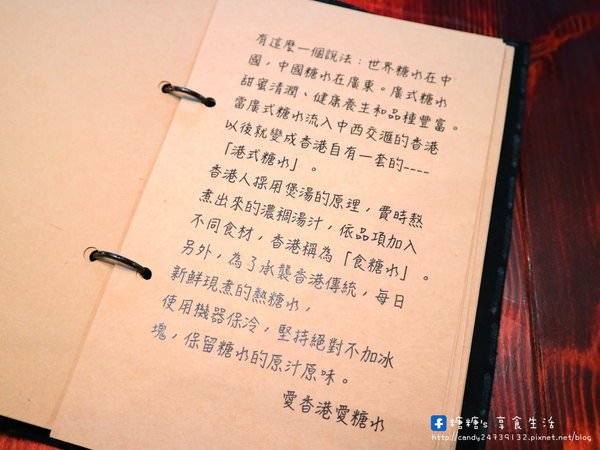 有這麼一個說法：世界糖水在中
國，中國糖水在廣東。廣式糖水
甜蜜清潤、健康養生和品種豐富。
當廣式糖水流入中西交滙的香港
以後就變成香港自有一套的----
「港式糖水」。
香港人採用煲湯的原理，費時熬
煮出來的濃稠湯汁，依品項加入
不同食材，香港稱為「食糖水」。
另外，為了承襲香港傳統，每日
新鮮現煮的熱糖水，
使用機器保冷，堅持絕對不加冰
塊，保留糖水的原汁原味。
愛香港愛糖水
糖糖's 享食生活
http://candy24739132.pixnet.net/blog